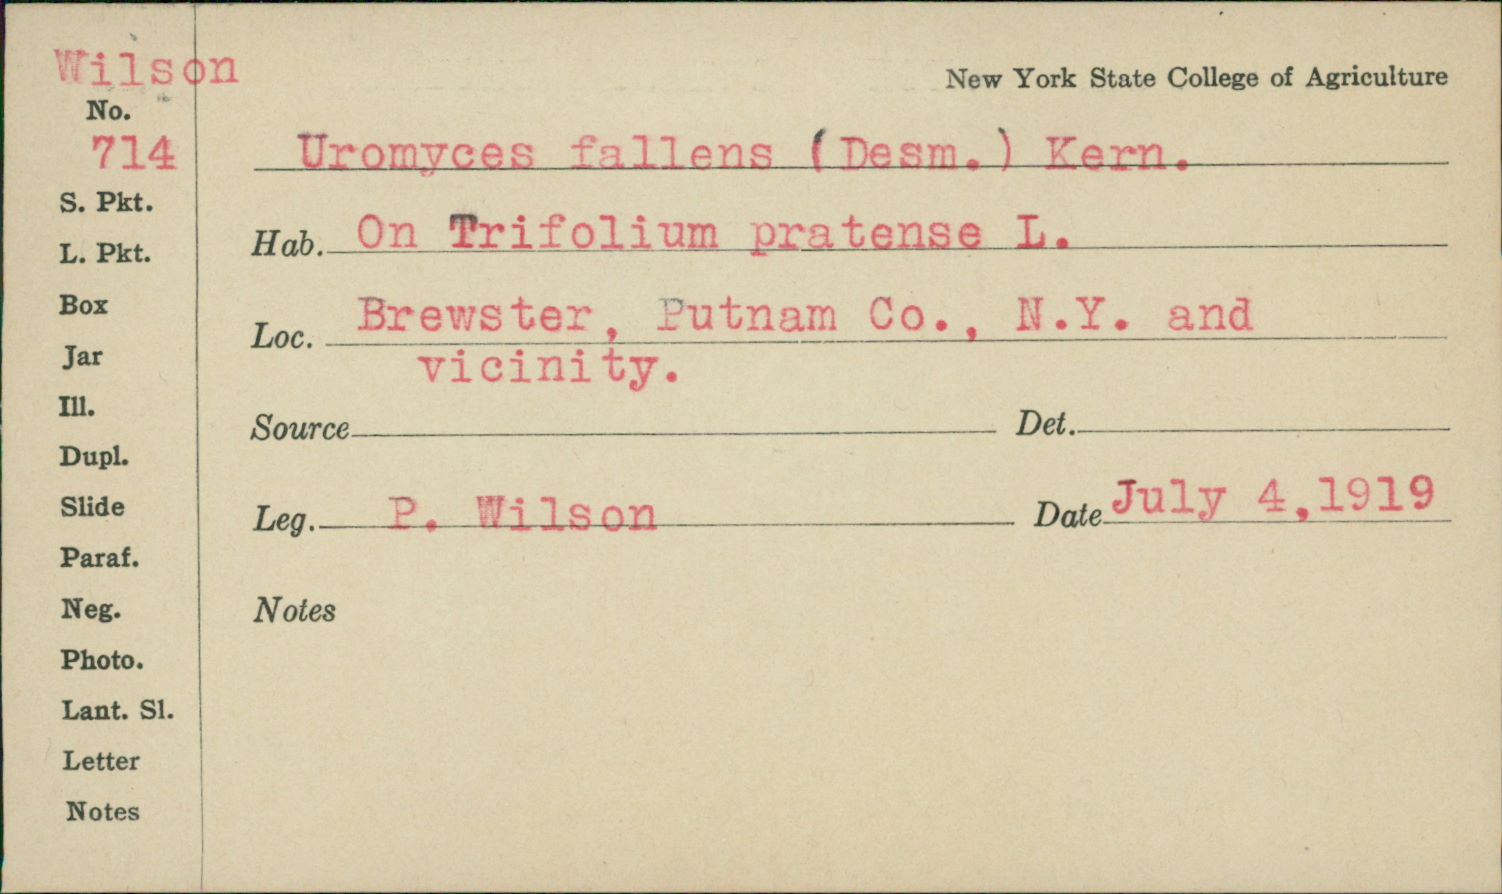 Wilson
New York State College of Agriculture
No.
714
Uromyces fallens (Desm.) Kern.
S. Pkt.
Hab. On Trifolium pratense L.
L. Pkt.
Box
Loc. Brewster, Putnam Co., N.Y. and
vicinity.
Jar
Ill.
Source
Det.
Dupl.
Slide
Leg. P. Wilson
Date July 4,1919
Paraf.
Neg.
Notes
Photo.
Lant. Sl.
Letter
Notes